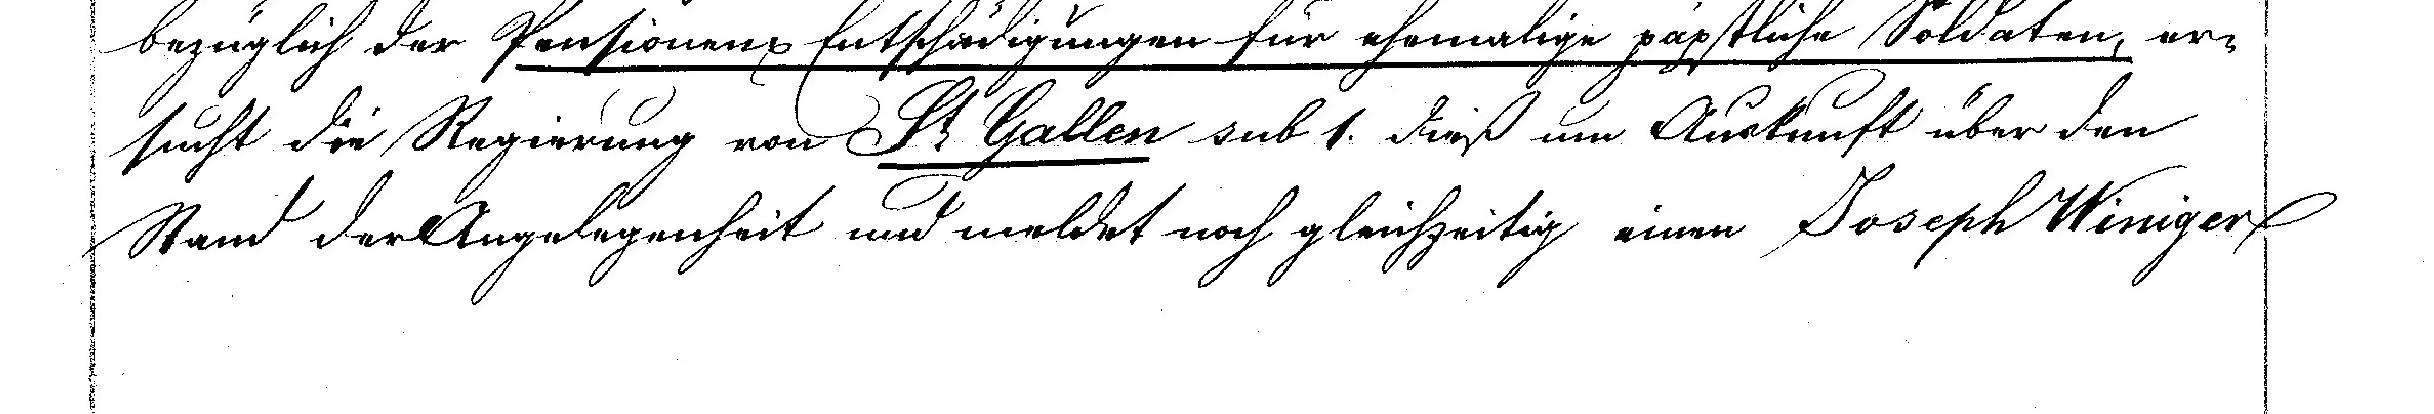 bezüglich der Pensionen & Entschädigungen für ehemalige päpstliche Soldaten, er-
sucht die Regierung von St Gallen sub 1. dieß um Auskunft über den
Stand der Angelegenheit und meldet noch gleichzeitig einen Joseph Winiger